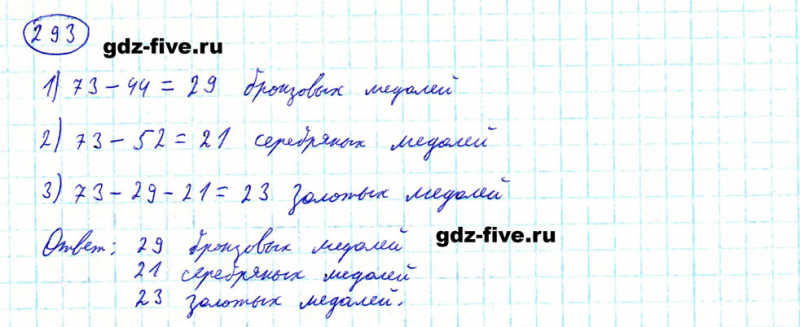 293
gdz-five.ru
1) 73 - 44 = 29 бронзовых медалей
2) 73 - 52 = 21 серебряных медалей
3) 73 - 29 - 21 = 23 золотых медалей
Ответ: 29 бронзовых медалей
gdz-five.ru
21 серебряных медалей
23 золотых медалей.